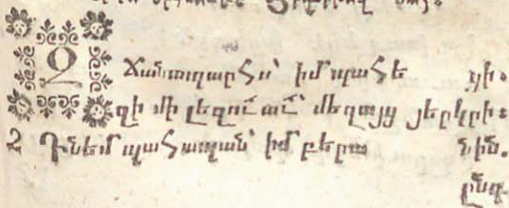 Զ Ճանապարհս՝ իմ պահե ցի.
զի մի լեզուաւ՝ մեղայց յերկրի.
2 Դնեմ պահապան՝ իմ բերա նին.
ընդ